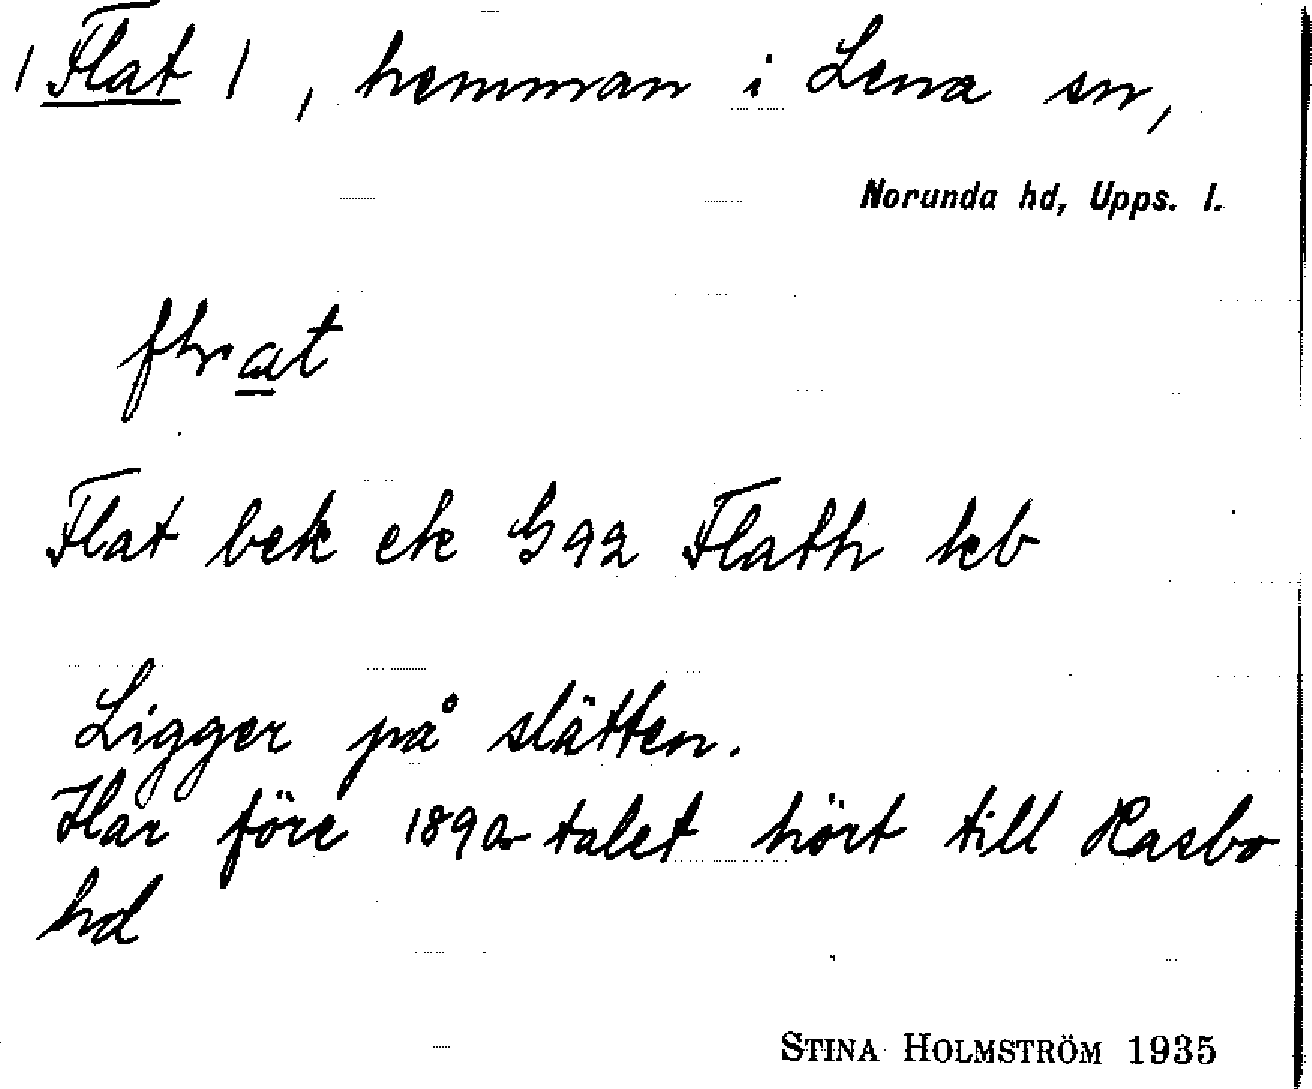 / Flat /, hemman i Lena sn,
Norunda hd, Upps. l.
Flat bek ek G 92 Flath kb
Ligger på slätten.
Har före 1890-talet hört till Rasbo
hd
STINA HOLMSTRÖM 1935